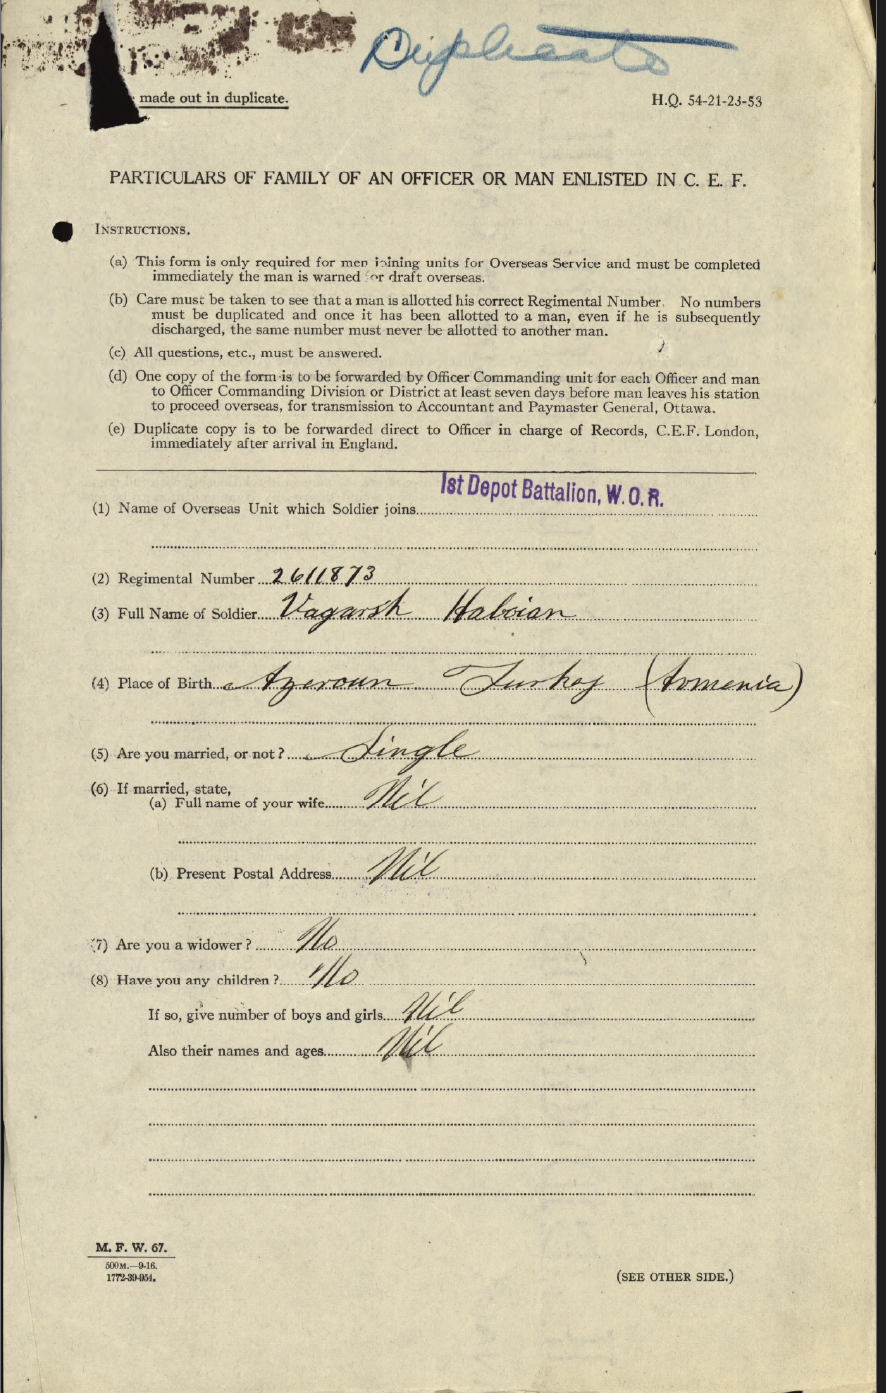 Duplicate
made out in duplicate.
H.Q. 54-21-23-53
PARTICULARS OF FAMILY OF AN OFFICER OR MAN ENLISTED IN C. E. F.
INSTRUCTIONS.
(a) This form is only required for men joining units for Overseas Service and must be completed
immediately the man is warned for draft overseas.
(b) Care must be taken to see that a man is allotted his correct Regimental Number. No numbers
must be duplicated and once it has been allotted to a man, even if he is subsequently
discharged, the same number must never be allotted to another man.
(c) All questions, etc., must be answered.
(d) One copy of the form is to be forwarded by Officer Commanding unit for each Officer and man
to Officer Commanding Division or District at least seven days before man leaves his station
to proceed overseas, for transmission to Accountant and Paymaster General, Ottawa.
(e) Duplicate copy is to be forwarded direct to Officer in charge of Records, C.E.F. London,
immediately after arrival in England.
(1) Name of Overseas Unit which Soldier joins 1st Depot Battalion, W.O.R.
(2) Regimental Number 2611873
(3) Full Name of Soldier Vagarsh Haboian
(4) Place of Birth Azeroun Turkey (Armenia)
(5) Are you married, or not? Single
(6) If married, state,
(a) Full name of your wife Nil
(b) Present Postal Address Nil
(7) Are you a widower? No
(8) Have you any children? No
If so, give number of boys and girls Nil
Also their names and ages Nil
M. F. W. 67.
500M.—9-16.
1772-39-954.
(SEE OTHER SIDE.)